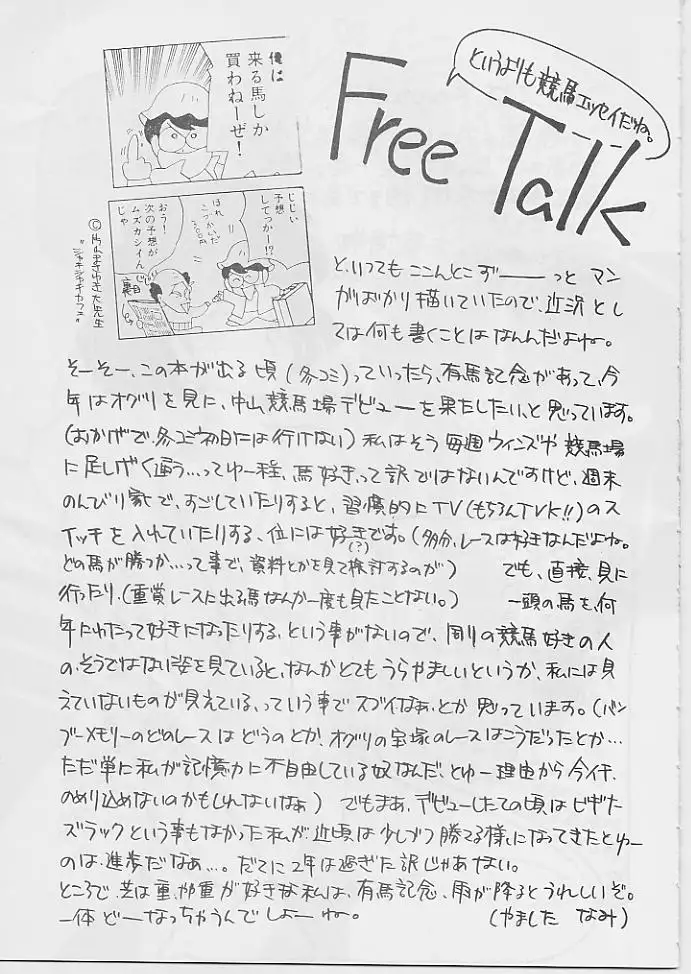 Free Talk
というよりも競馬エッセイだね。
俺は
来る馬しか
買わねーぜ!
じじい
予想
してっかー!?
ほれ
こづかいだ
おう!
次の予想が
ムズカシイん
じゃ
裏目
©片山まさゆき大先生
"シャキシャキカフェ"
と、いってもここんとこずーーっとマン
がばかり描いていたので、近況とし
ては何も書くことはなんんだよね。
そーそー、この本が出る頃(冬コミ)っていったら、有馬記念があって、今
年はオグリを見に、中山競馬場デビューを果たしたい、と思っています。
(おかげで、冬コミ初日には行けない)私はそう毎週ウィンズや競馬場
に足しげく通う…ってゆー程、馬好きって訳ではないんですけど、週末
のんびり家で、すごしていたりすると、習慣的にTV(もちろんTVK!!)のス
イッチを入れていたりする、位には好きです。(多分、レースは好きなんだよね。
(?)
どの馬が勝つか…って事で、資料とかを見て検討するのが) でも、直接、見に
行ったり、(重賞レースに出る馬なんか一度も見たことない。) 一頭の馬を、何
年にわたって好きになったりする、という事がないので、周りの競馬好きの人
の、そうではない姿を見ていると、なんかとてもうらやましいというか、私には見
えていないものが見えている、っていう事でスゴイなぁ、とか思っています。(バン
ブーメモリーのどのレースはどうのとか、オグリの宝塚のレースはこうだったとか…
ただ単に私が記憶力に不自由している奴なんだ、とゆー理由から今イチ、
のめり込めないのかもしれないなぁ) でもまあ、デビューしたての頃はビギナ
ズラックという事もなかった私が、近頃は少しづつ勝てる様になってきたとゆー
のは、進歩だなぁ…。だてに2年は過ぎた訳じゃあない。
ところで、芝は重、やや重が好きな私は、有馬記念、雨が降るとうれしいぞ。
一体どーなっちゃうんでしょーね。 (やました なみ)